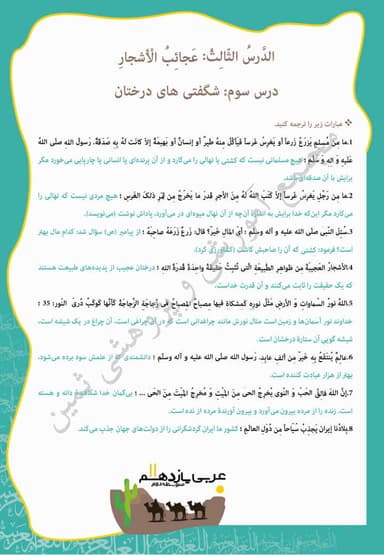 الدَّرسُ الثّالِثُ: عَجائِبُ الْأشجارِ
درس سوم: شگفتی های درختان
❖ عبارات زیر را ترجمه کنید.
1.ما مِن مُسلِمٍ یَزرَعُ زَرعاً أو یَغرِسُ غَرساً فَیَأکُلُ مِنهُ طَیرٌ أو إنسانٌ أو بَهیمَةٌ إلّا کانَت لَهُ بِهِ صَدَقَةٌ. رَسول الله صلی الله
عَلیه و آلِهِ وَ سَلّم : هیچ مسلمانی نیست که کشتی یا نهالی را می‌کارد و از آن پرنده‌ای یا انسانی یا چارپایی می‌خورد مگر
برایش با آن صدقه‌ای باشد.
2.ما مِن رَجُلٍ یَغرِسُ غَرساً إلّا کَتَبَ اللهُ لَهُ مِنَ الأجرِ قَدرَ ما یَخرُجُ مِن ثَمَرِ ذلِکَ الغَرسِ ؛ هیچ مردی نیست که نهالی را
می‌کارد مگر این‌که خدا برایش به اندازه آن‌چه از آن نهال میوه‌ای در می‌آورد، پاداش نوشت (می‌نویسد).
3.سُئِلَ النَّبی صلی الله علیه و آله وسلم : أیُّ المالِ خَیرٌ؟ قالَ: زَرعٌ زَرَعَهُ صاحِبُهُ ؛ از پیامبر (ص) سؤال شد: کدام مال بهتر
است؟ فرمود: کشتی که آن را صاحبش کاشت (کشاورزی کرد).
4.الأشجارُ العَجیبَةُ مِن ظَواهِرِ الطَّبیعَةِ الَّتی تُثبِتُ حَقیقَةً واحِدَةً قُدرَةَ اللهِ ؛ درختان عجیب از پدیده‌های طبیعت هستند
که یک حقیقت را ثابت می‌کنند و آن قدرت خداست.
5.اللهُ نورُ السَّماواتِ وَ الأرضِ مَثَلُ نورِهِ کَمِشکاةٍ فیها مِصباحٌ المِصباحُ فی زُجاجَةٍ الزُّجاجَةُ کَأنَّها کَوکَبٌ دُرّی. النّور: 35 ؛
خداوند نور آسمان‌ها و زمین است مثال نورش مانند چراغدانی است که در آن چراغی است، آن چراغ در یک شیشه است،
شیشه گویی آن ستارهٔ درخشان است.
6.عالِمٌ یُنتَفَعُ بِهِ خَیرٌ مِن ألفِ عابِدٍ. رَسولُ الله صلی الله علیه و آله وسلّم ؛ دانشمندی که از علمش سود برده می‌شود،
بهتر از هزار عبادت کننده است.
7.إنَّ اللهَ فالِقُ الحَبِّ وَ النَّوی یُخرِجُ الحَی مِنَ المَیِّتِ وَ مُخرِجُ المَیِّتِ مِنَ الحَی ... ؛ بی‌گمان خدا شکافنده دانه و هسته
است. زنده را از مرده بیرون می‌آورد و بیرون آورندهٔ مرده از زنده است.
8.بِلادُنا إیران یَجذِبُ سُیّاحاً مِن دُوَلِ العالَمِ ؛ کشور ما ایران گردشگرانی را از دولت‌های جهان جذب می‌کند.
مجتمع آموزشی و پژوهشی ثمین
عربی یازدهم